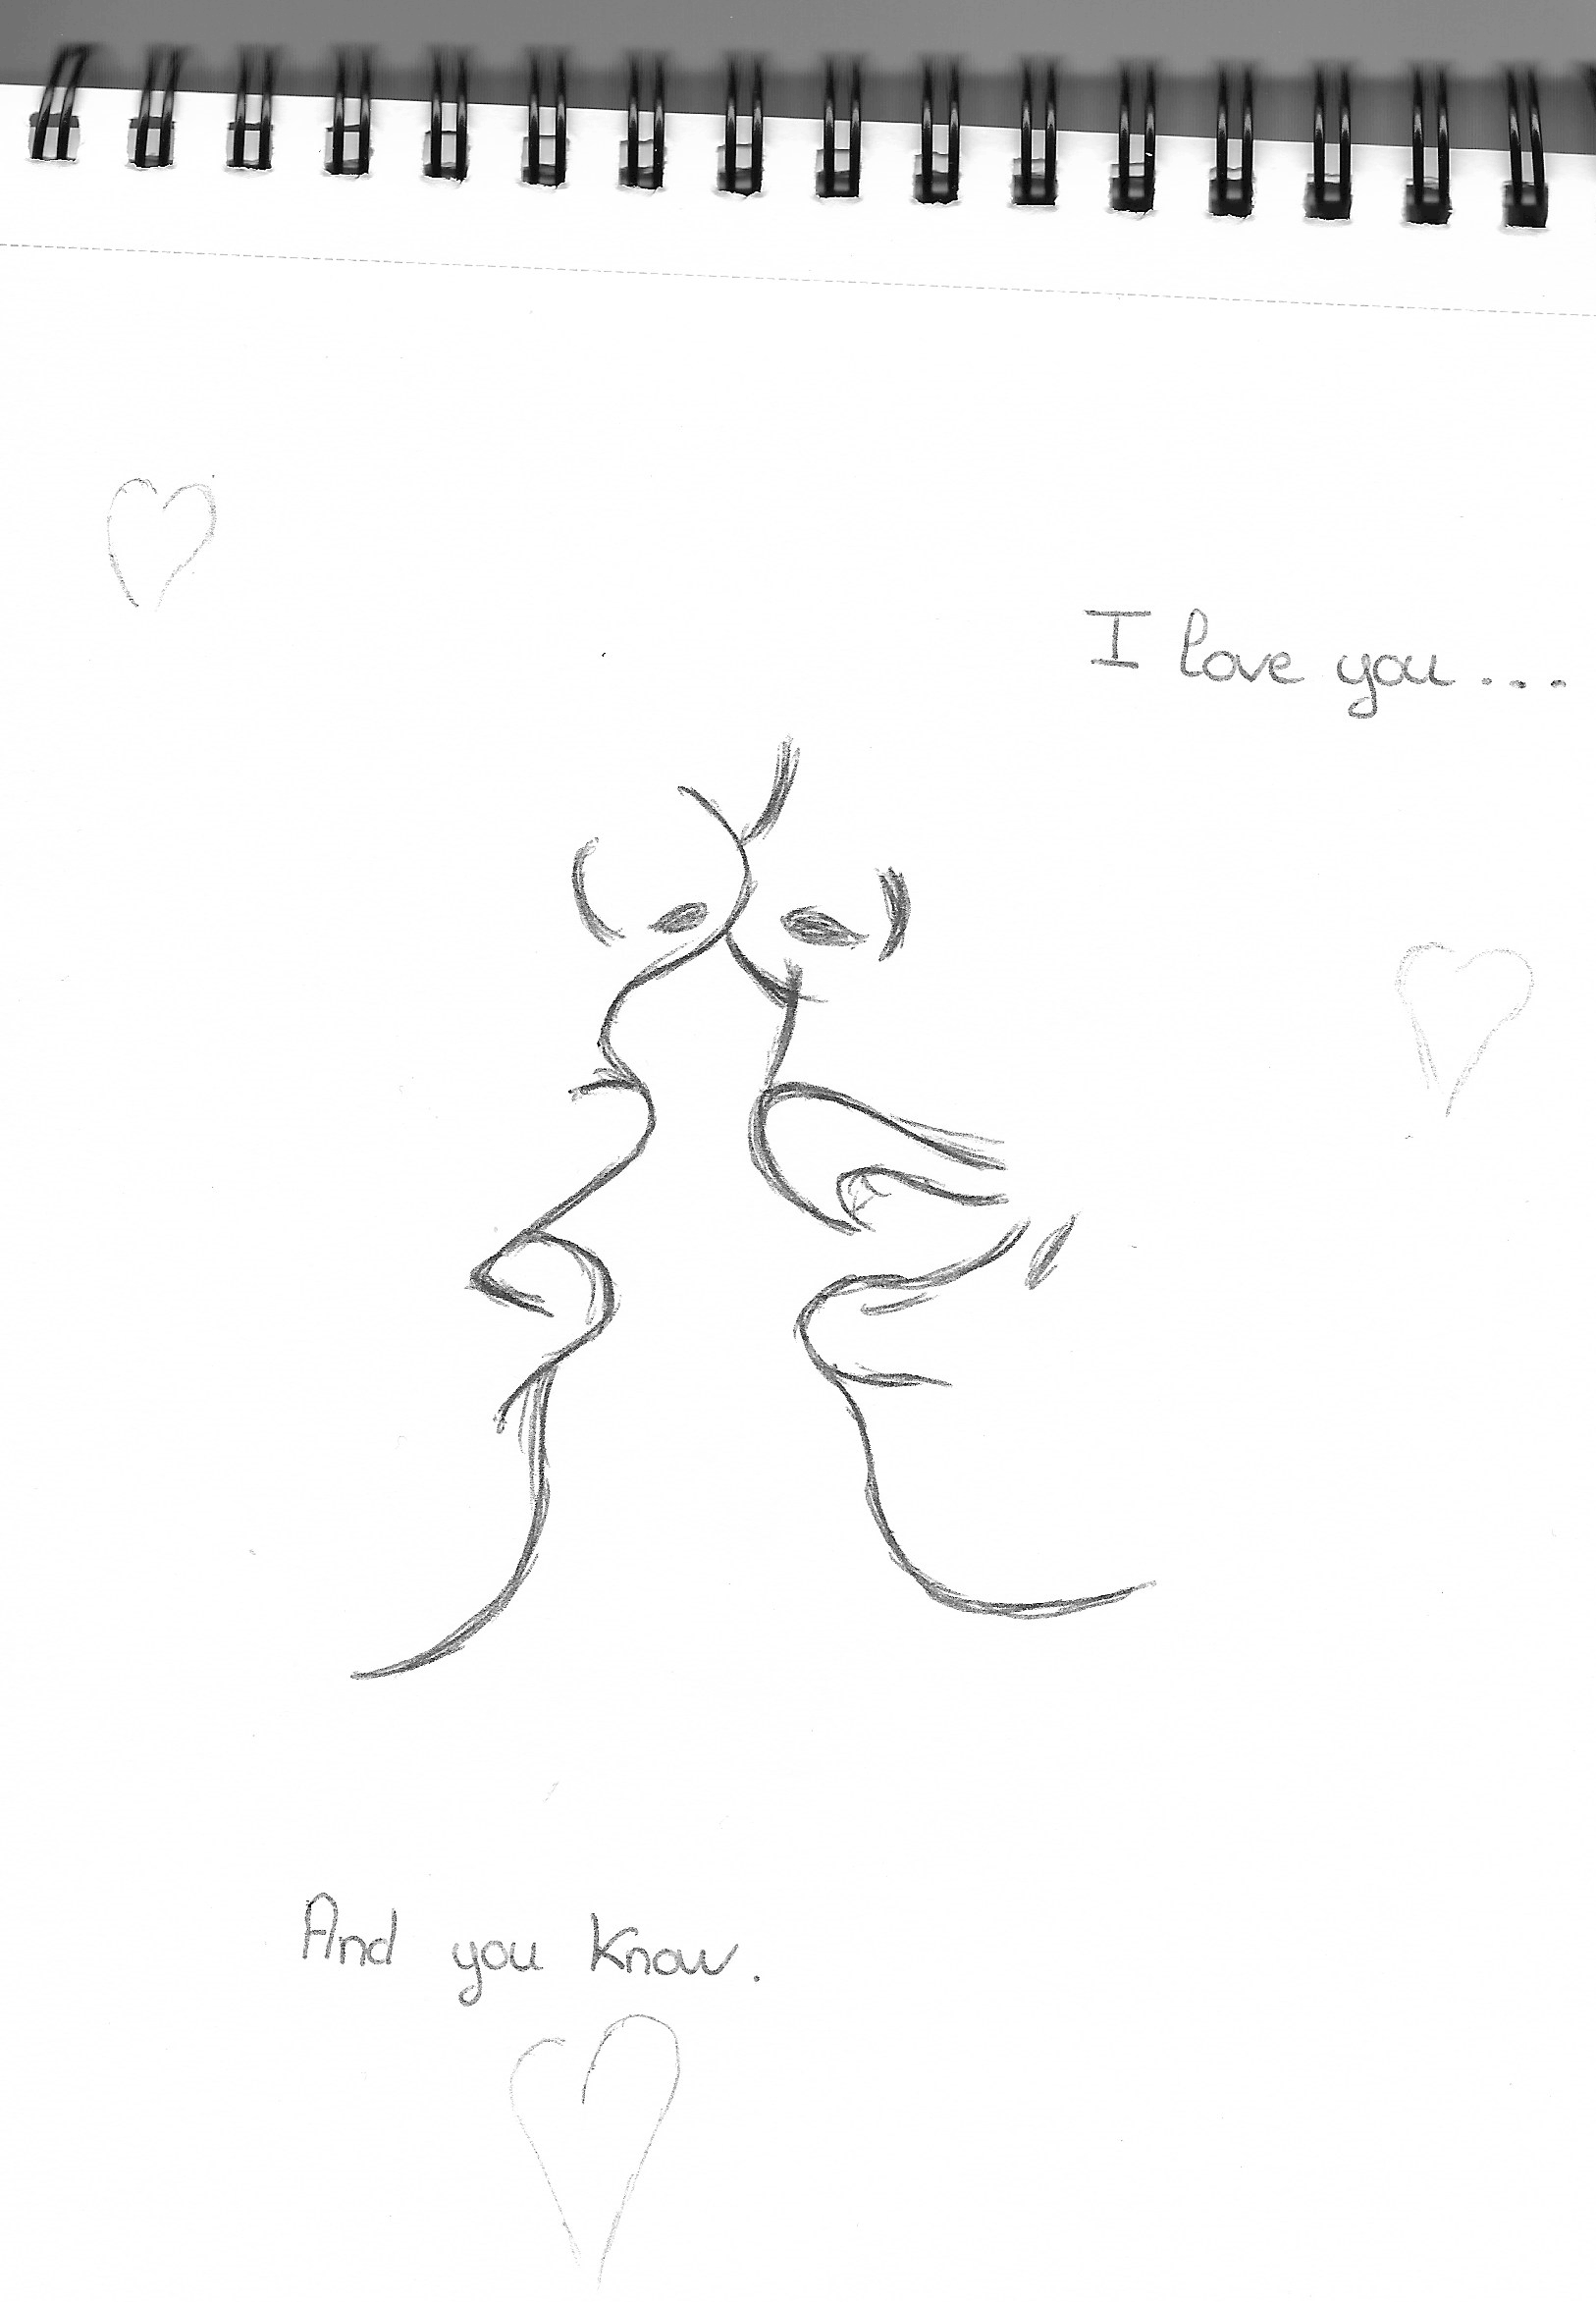 I love you....
And you know.